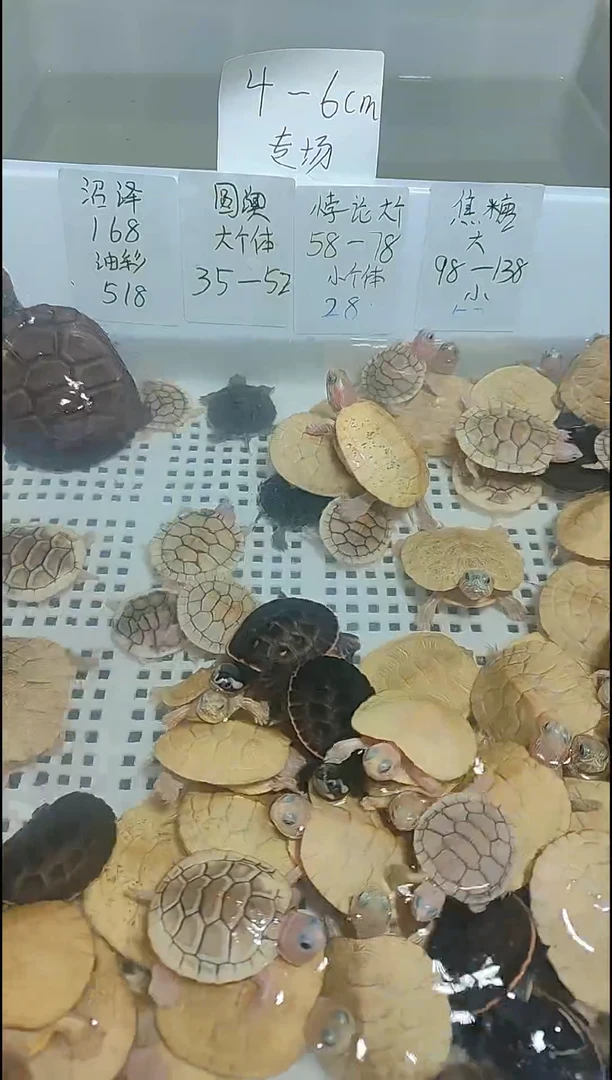 4－6cm
专场
沼泽
168
油彩
518
圆澳
大个体
35－52
悖论大个
58－78
小个体
28
焦糖
大
98－138
小